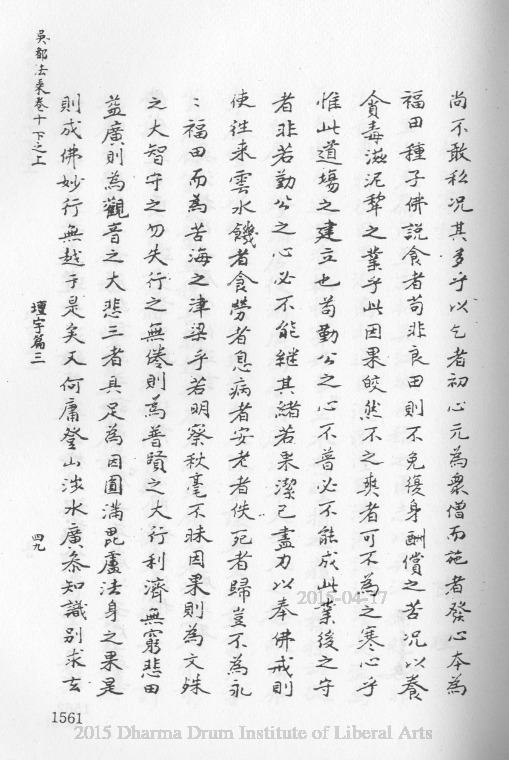 尚不敢私况其多乎以乞者初心元為衆僧而施者發心本為
福田種子佛說食者苟非良田則不免復身酬償之苦况以養
貪毒滋泥犂之業乎此因果皎然不之爽者可不為之寒心乎
惟此道場之建立也苟勤公之心不普必不能成此業後之守
者非若勤公之心必不能継其緒若果潔己盡力以奉佛戒則
使徃来雲水饑者食勞者息病者安老者佚死者歸豈不為永
〻福田而為苦海之津梁乎若明察秋毫不昧因果則為文殊
之大智守之勿失行之無倦則為普賢之大行利濟無窮悲田
益廣則為觀音之大悲三者具足為因圓滿毘盧法身之果是
則成佛妙行無越于是矣又何庸登山涉水廣叅知識别求玄
吳都法乘卷十下之上
壇宇篇三
四九
1561
2015-04-17
2015 Dharma Drum Institute of Liberal Arts